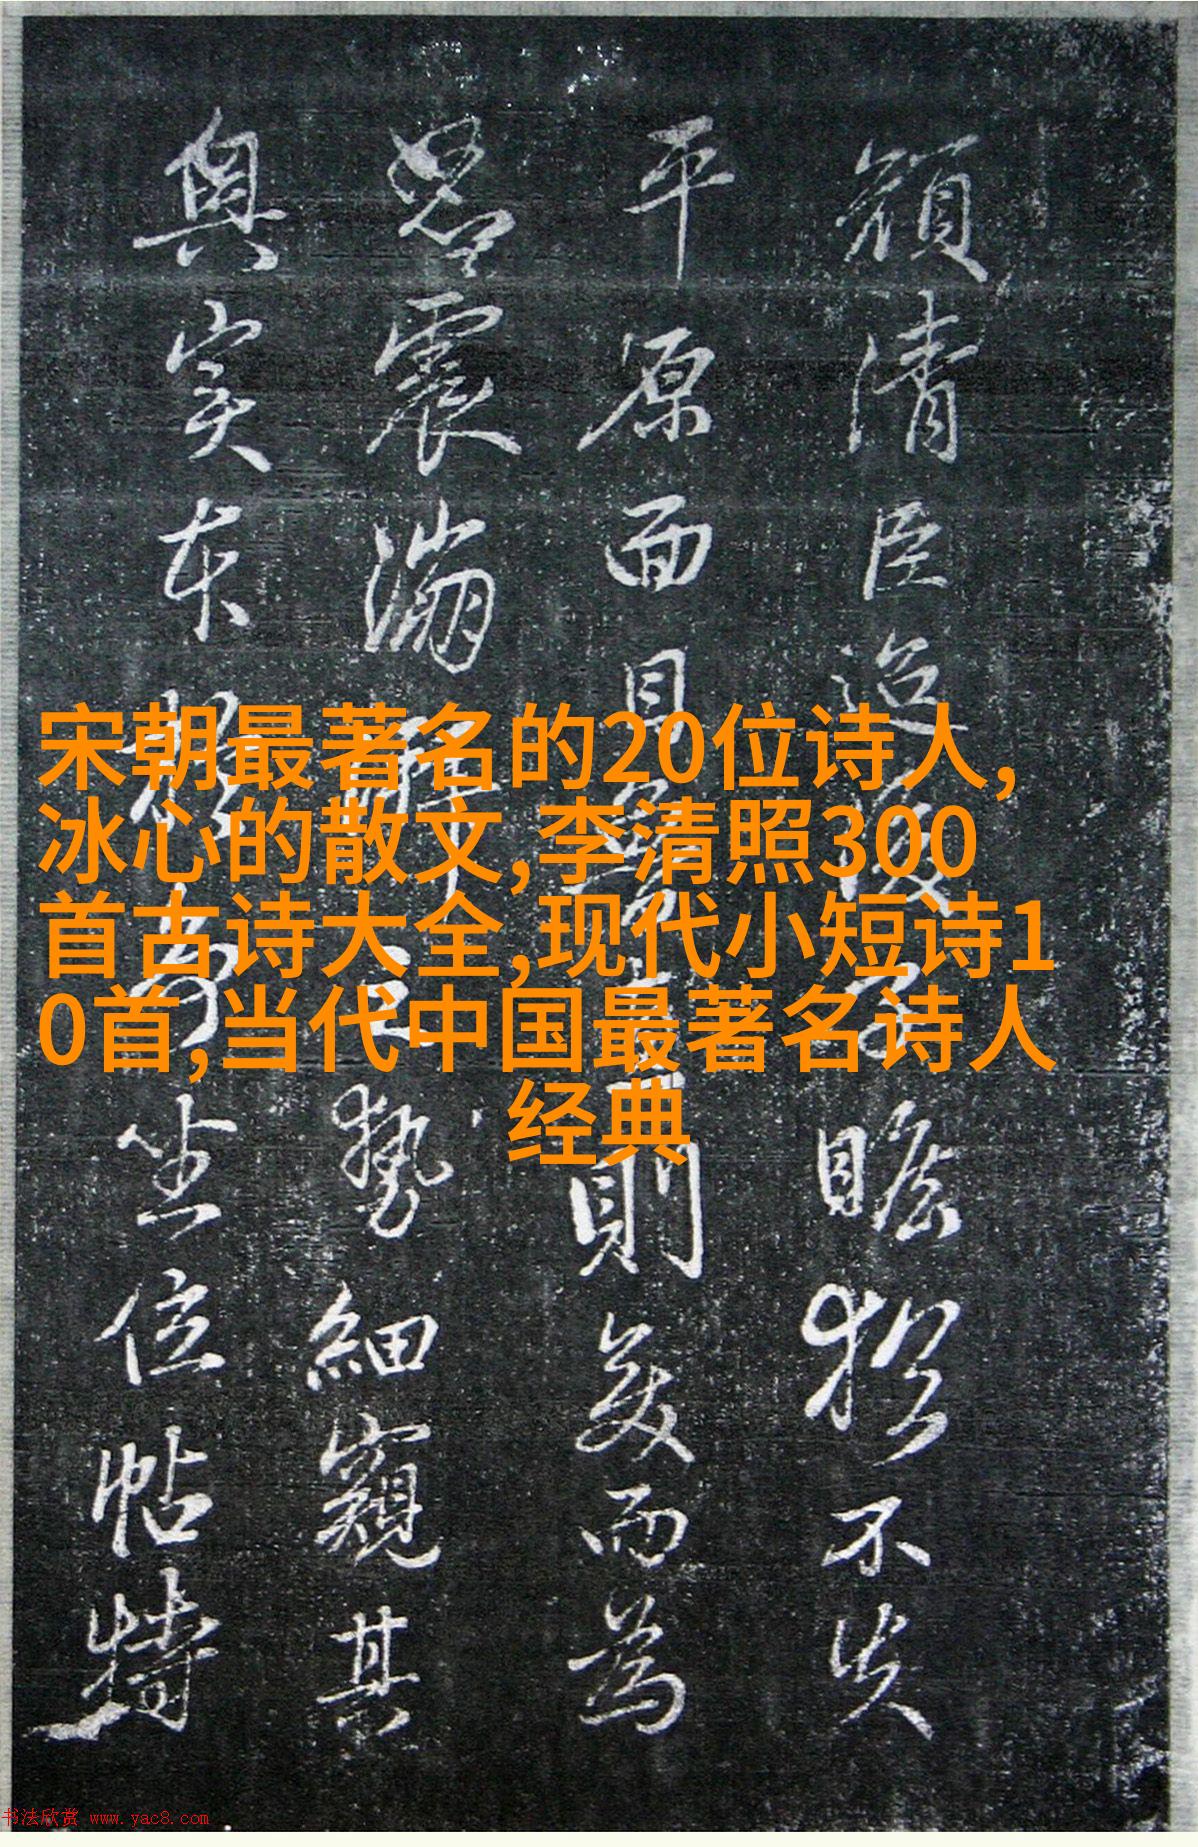 顔清臣迢瞻不失
平原面目則美而為
震勢細窺其
與寔本坐位帖特
宋朝最著名的20位诗人,
冰心的散文,李清照300
首古诗大全,现代小短诗1
0首,当代中国最著名诗人
经典
书法欣赏 www.yac8.com